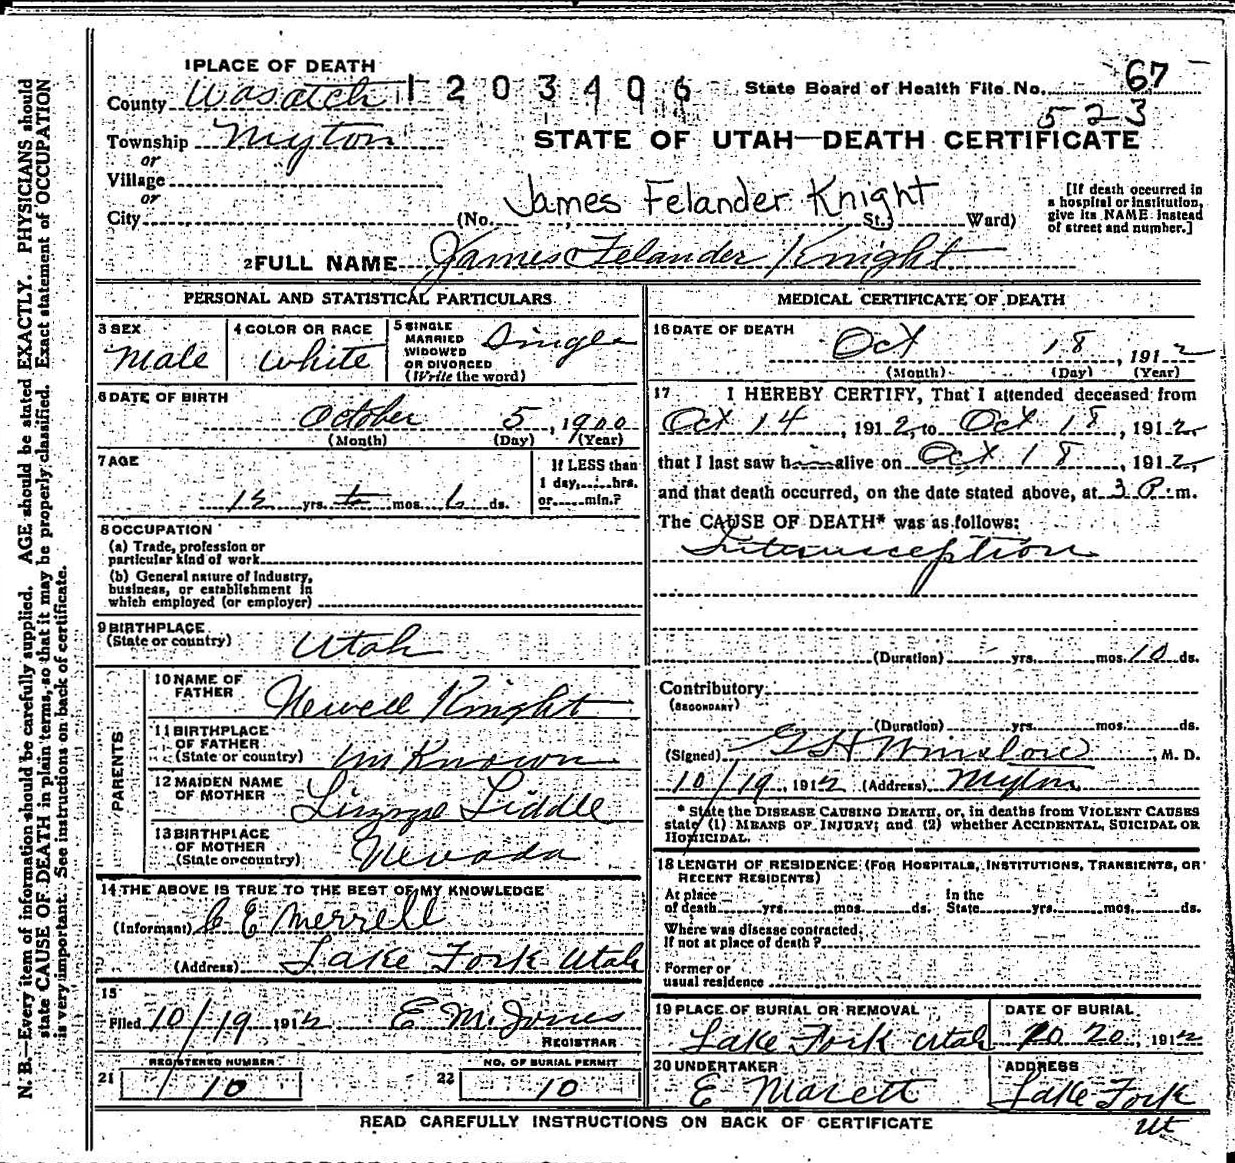 1 PLACE OF DEATH
County Wasatch 1203406 State Board of Health File No. 67
523
Township Myton STATE OF UTAH—DEATH CERTIFICATE
or
Village
or
City (No. James Felander Knight St. Ward)
[If death occurred in
a hospital or institution,
give its NAME instead
of street and number.]
2 FULL NAME James Felander Knight
PERSONAL AND STATISTICAL PARTICULARS
3 SEX
Male
4 COLOR OR RACE
White
5 SINGLE
MARRIED
WIDOWED
OR DIVORCED
(Write the word)
Single
6 DATE OF BIRTH
October 5, 1900
(Month) (Day) (Year)
7 AGE
12 yrs. mos. ds.
If LESS than
1 day, hrs.
or min.?
8 OCCUPATION
(a) Trade, profession or
particular kind of work
(b) General nature of industry,
business, or establishment in
which employed (or employer)
9 BIRTHPLACE
(State or country) Utah
PARENTS
10 NAME OF
FATHER Newell Knight
11 BIRTHPLACE
OF FATHER
(State or country) unKnown
12 MAIDEN NAME
OF MOTHER Lizzye Liddle
13 BIRTHPLACE
OF MOTHER
(State or country) Nevada
14 THE ABOVE IS TRUE TO THE BEST OF MY KNOWLEDGE
(Informant) C E Merrell
(Address) Lake Fork Utah
15
Filed 10/19 1912 E M Jones
REGISTRAR
REGISTERED NUMBER
21 10
NO. OF BURIAL PERMIT
22 10
MEDICAL CERTIFICATE OF DEATH
16 DATE OF DEATH
Oct 18, 1912
(Month) (Day) (Year)
17 I HEREBY CERTIFY, That I attended deceased from
Oct 14, 1912, to Oct 18, 1912,
that I last saw h alive on Oct 18, 1912,
and that death occurred, on the date stated above, at 3 P. m.
The CAUSE OF DEATH* was as follows:
Intussception
(Duration) yrs. mos. 10 ds.
Contributory
(SECONDARY)
(Duration) yrs. mos. ds.
(Signed) G H Winslow, M. D.
10/19, 1912 (Address) Myton
* State the DISEASE CAUSING DEATH, or, in deaths from VIOLENT CAUSES
state (1) MEANS OF INJURY; and (2) whether ACCIDENTAL, SUICIDAL OR
HOMICIDAL.
18 LENGTH OF RESIDENCE (FOR HOSPITALS, INSTITUTIONS, TRANSIENTS, OR
RECENT RESIDENTS)
At place
of death yrs. mos. ds.
In the
State yrs. mos. ds.
Where was disease contracted,
If not at place of death?
Former or
usual residence
19 PLACE OF BURIAL OR REMOVAL
Lake Fork Utah
DATE OF BURIAL
10 20, 1912
20 UNDERTAKER
E Marett
ADDRESS
Lake Fork
Ut
READ CAREFULLY INSTRUCTIONS ON BACK OF CERTIFICATE
N. B.—Every item of information should be carefully supplied. AGE should be stated EXACTLY. PHYSICIANS should
state CAUSE OF DEATH in plain terms, so that it may be properly classified. Exact statement of OCCUPATION
is very important. See instructions on back of certificate.